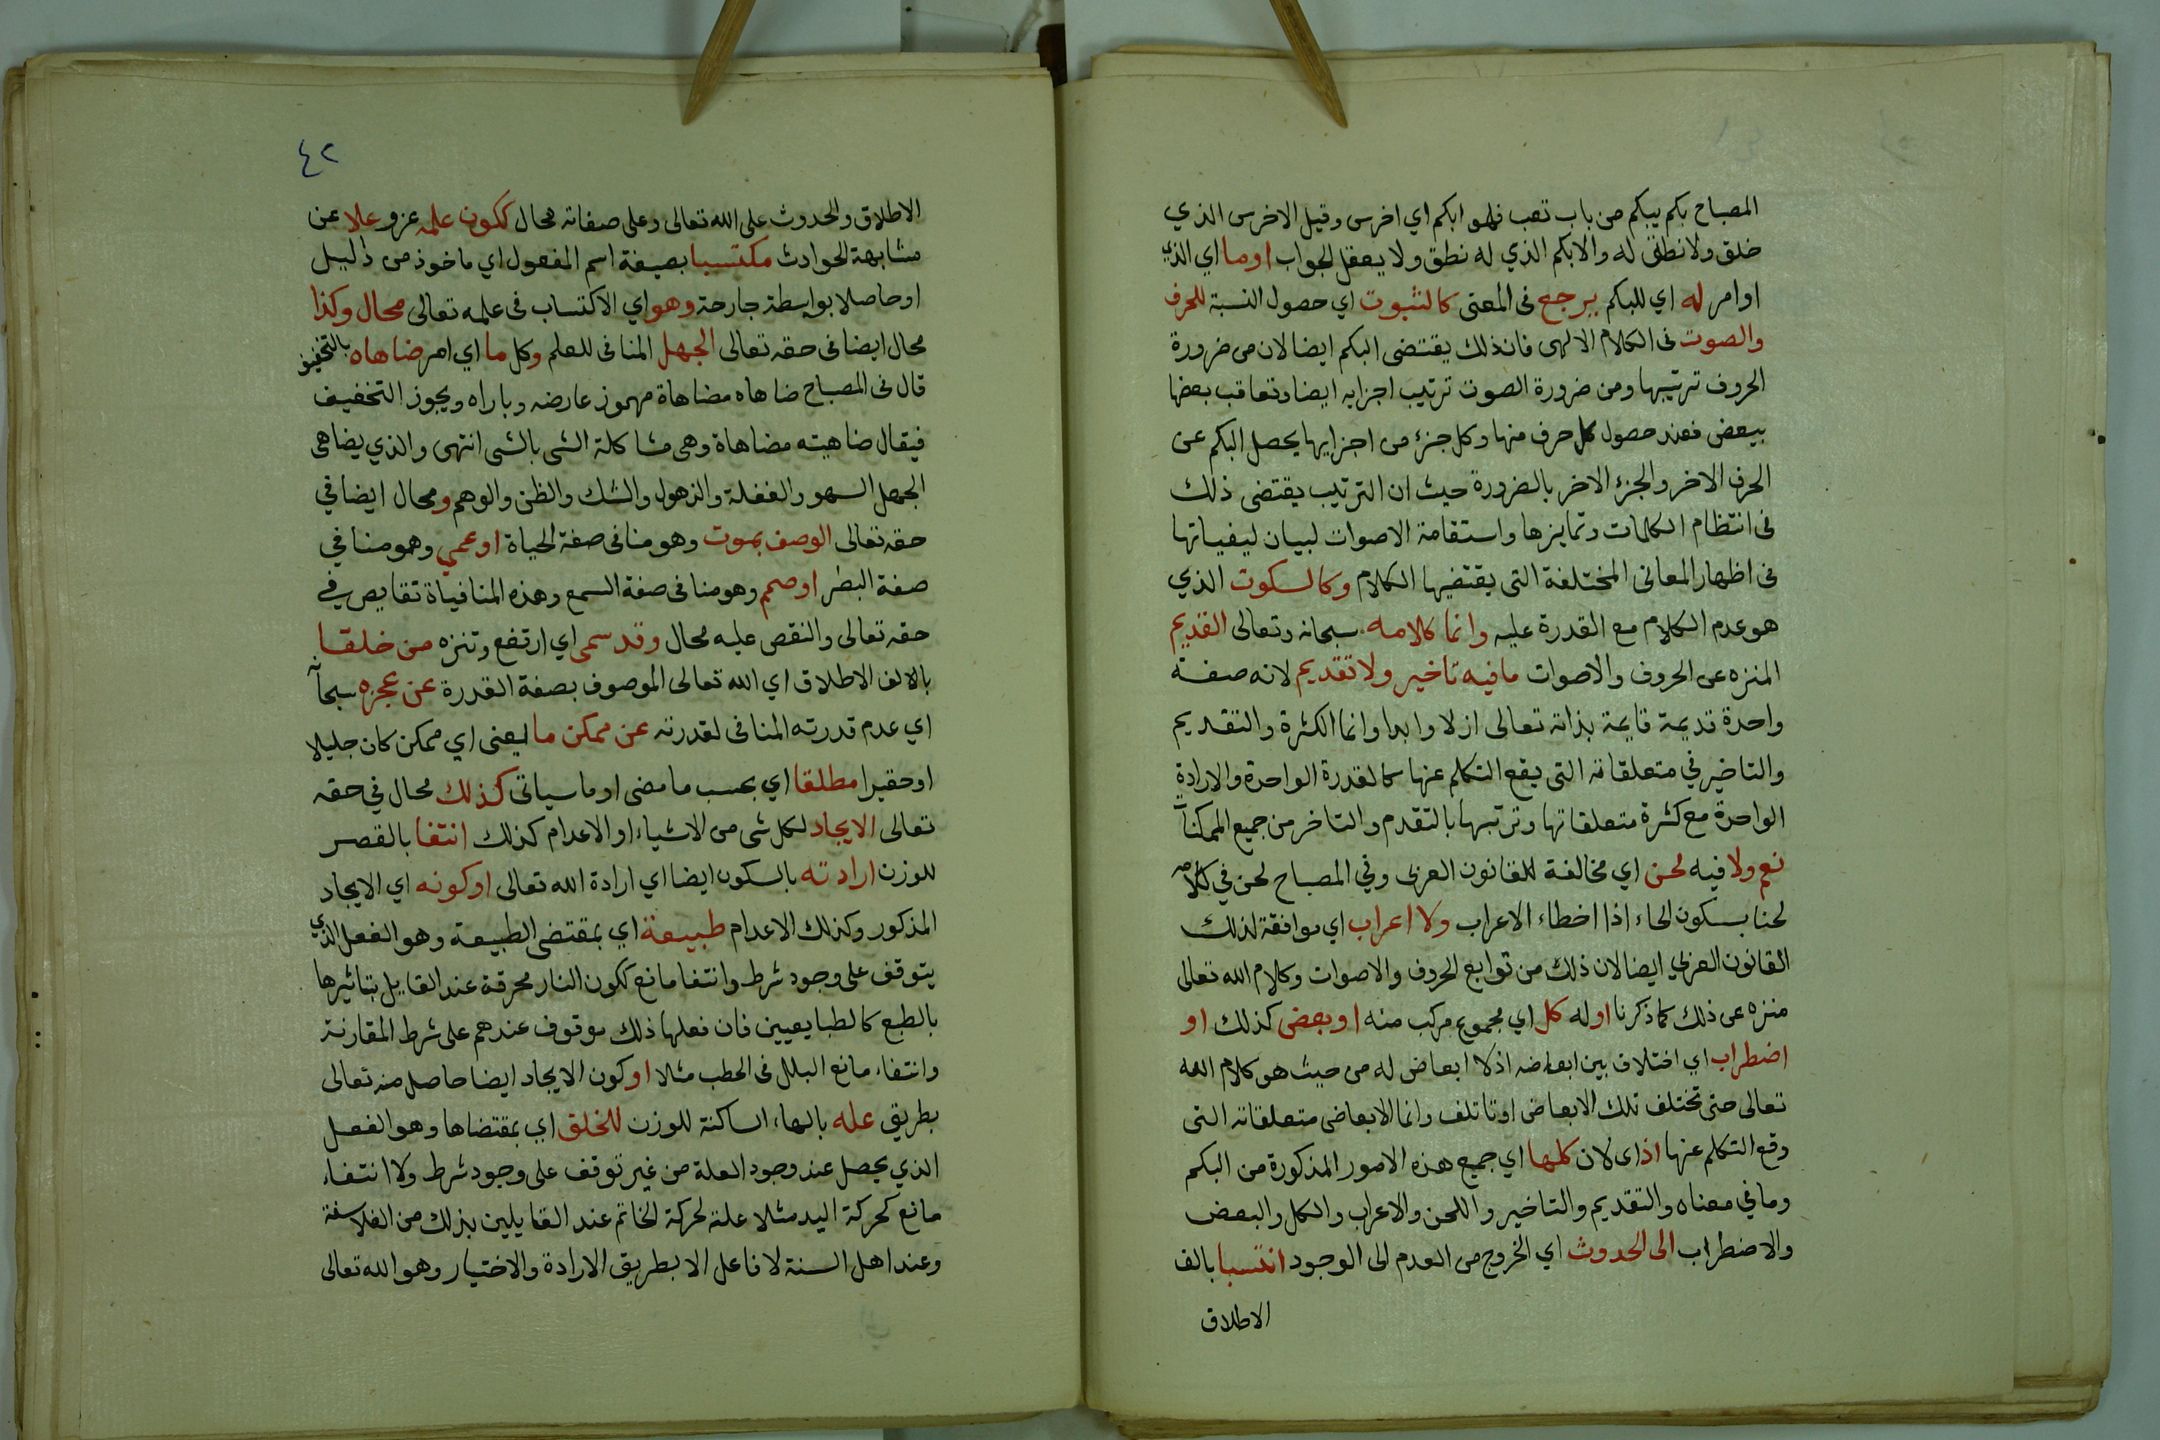 المصباح بكم يبكم من باب تعب فهو ابكم اي اخرس وقيل الاخرس الذي
خلق ولا نطق له والابكم الذي له نطق ولا يعقل الجواب اوما اي الذي
او امر له اي للبكم يرجع في المعنى كالثبوت اي حصول النسبة للحرف
والصوت في الكلام الالهى فان ذلك يقتضى البكم ايضا لان من ضرورة
الحروف ترتيبها ومن ضرورة الصوت ترتيب اجزايه ايضا وتعاقب بعضها
ببعض فعند حصول كل حرف منها وكل جزء من اجزايها يحصل البكم عن
الحرف الاخر والجزء الاخر بالضرورة حيث ان الترتيب يقتضى ذلك
في انتظام الكلمات وتمايزها واستقامة الاصوات لبيان ليفياتها
في اظهار المعاني المختلفة التي يقتضيها الكلام وكالسكوت الذي
هو عدم الكلام مع القدرة عليه وانما كلامه سبحانه وتعالى القديم
المنزه عن الحروف والاصوات ما فيه تاخير ولا تقديم لانه صفة
واحدة قديمة قايمة بذاته تعالى ازلا وابدا وانما الكثرة والتقديم
والتاخير في متعلقاته التي يقع التكلم عنها كالقدرة الواحدة والارادة
الواحدة مع كثرة متعلقاتها وترتبها بالتقدم والتاخر من جميع الممكنات
نعم ولا فيه لحن اي مخالفة للقانون العربى وفي المصباح لحن في كلامه
لحنا بسكون الحاء اذا اخطاء الاعراب ولا اعراب اي موافقة لذلك
القانون العربي ايضا لان ذلك من توابع الحروف والاصوات وكلام الله تعالى
منزه عن ذلك كما ذكرنا اوله كل اي مجموع مركب منه او بعض كذلك او
اضطراب اي اختلاف بين ابعاضه اذ لا ابعاض له من حيث هو كلام الله
تعالى حتى تختلف تلك الابعاض او تاتلف وانما الابعاض متعلقاته التى
وقع التكلم عنها اذ اى لان كلها اي جميع هذه الامور المذكورة من البكم
وما في معناه والتقديم والتاخير واللحن والاعراب والكل والبعض
والاضطراب الى الحدوث اي الخروج من العدم الى الوجود انتسبا بالف
الاطلاق
٤٢
الاطلاق والحدوث على الله تعالى وعلى صفاته محال ككون علمه عز وعلا عن
مشابهة الحوادث مكتسبا بصيغة اسم المفعول اي ماخوذ من دليل
او حاصلا بواسطة جارحة وهو اي الاكتساب في علمه تعالى محال وكذا
محال ايضا في حقه تعالى الجهل المنافى للعلم وكل ما اي امر ضاهاه بالتخفيف
قال في المصباح ضاهاه مضاهاة مهموز عارضه وباراه ويجوز التخفيف
فيقال ضاهيته مضاهاة وهى مشاكلة الشى بالشى انتهى والذي يضاهى
الجهل السهو والغفلة والذهول والشك والظن والوهم ومحال ايضا في
حقه تعالى الوصف بموت وهو منافى صفة الحياة او عمي وهو منافي
صفة البصر او صمم وهو منافى صفة السمع وهذه المنافياة نقايص في
حقه تعالى والنقص عليه محال وقد سمى اي ارتفع وتنزه من خلقا
بالالف الاطلاق اي الله تعالى الموصوف بصفة القدرة عن عجزه سبحا
اي عدم قدرته المنافى لقدرته عن ممكن ما يعنى اي ممكن كان جليلا
او حقيرا مطلقا اي بحسب ما مضى او ما سياتى كذلك محال في حقه
تعالى الايجاد لكل شى من الاشياء او الاعدام كذلك انتفا بالقصر
للوزن ارادته بالسكون ايضا اي ارادة الله تعالى او كونه اي الايجاد
المذكور وكذلك الاعدام طبيعة اي بمقتضى الطبيعة وهو الفعل الذي
يتوقف على وجود شرط وانتفا مانع ككون النار محرقة عند القايل بتاثيرها
بالطبع كالطبايعيين فان فعلها ذلك موقوف عندهم على شرط المقارنة
وانتفاء مانع البلل في الحطب مثلا او كون الايجاد ايضا حاصل منه تعالى
بطريق عله بالهاء الساكنة للوزن للخلق اي بمقتضاها وهو الفعل
الذي يحصل عند وجود العلة من غير توقف على وجود شرط ولا انتفاء
مانع كحركة اليد مثلا علة لحركة الخاتم عند القايلين بذلك من الفلاسفة
وعند اهل السنة لا فاعل الا بطريق الارادة والاختيار وهو الله تعالى